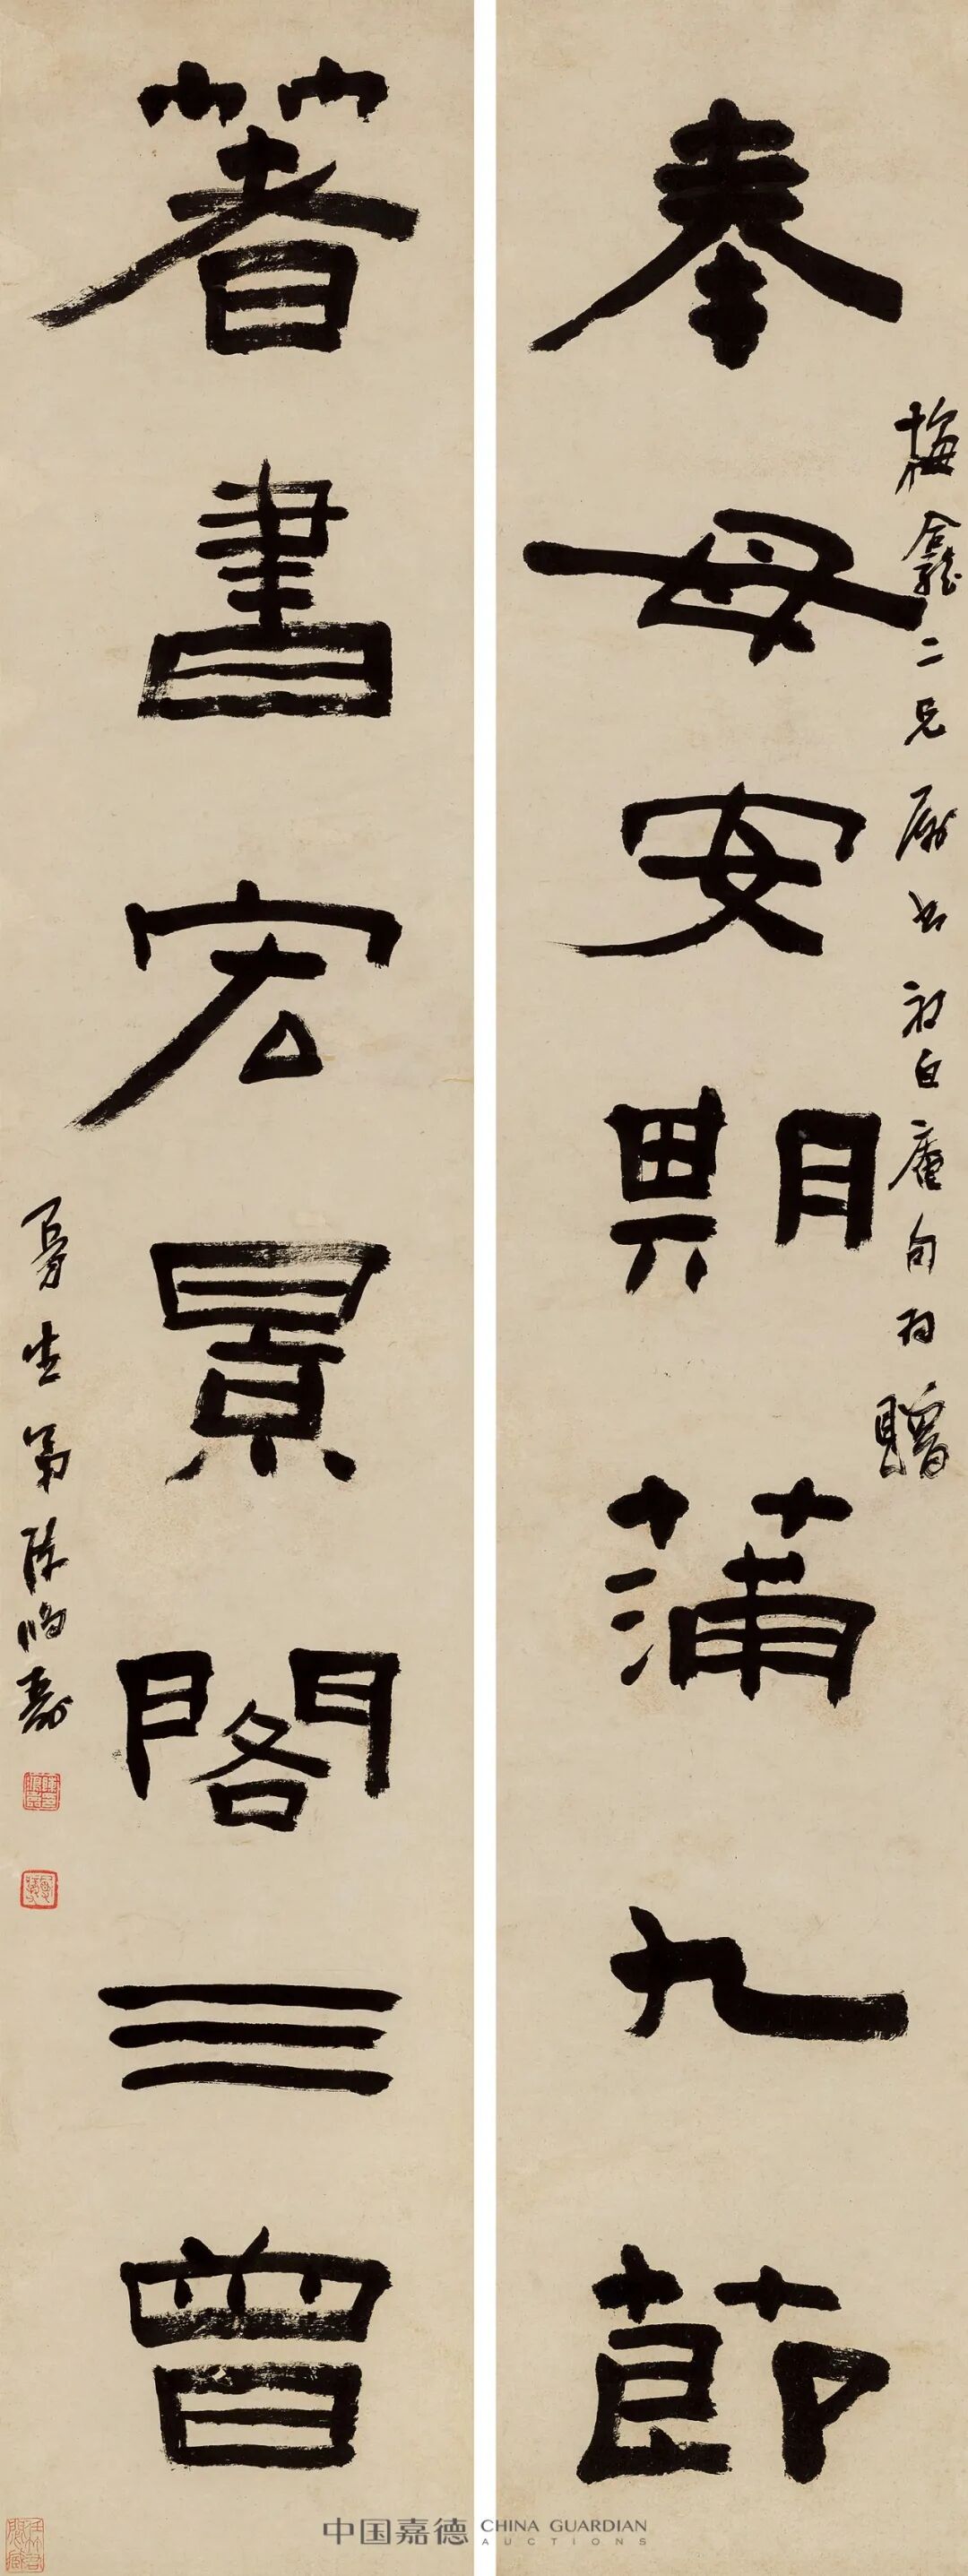 奉母安期蒲九節
梅龕二兄屬書初白庵句為贈
箸書宏景閣三曾
曼生弟陳鴻壽
中国嘉德 CHINA GUARDIAN AUCTIONS